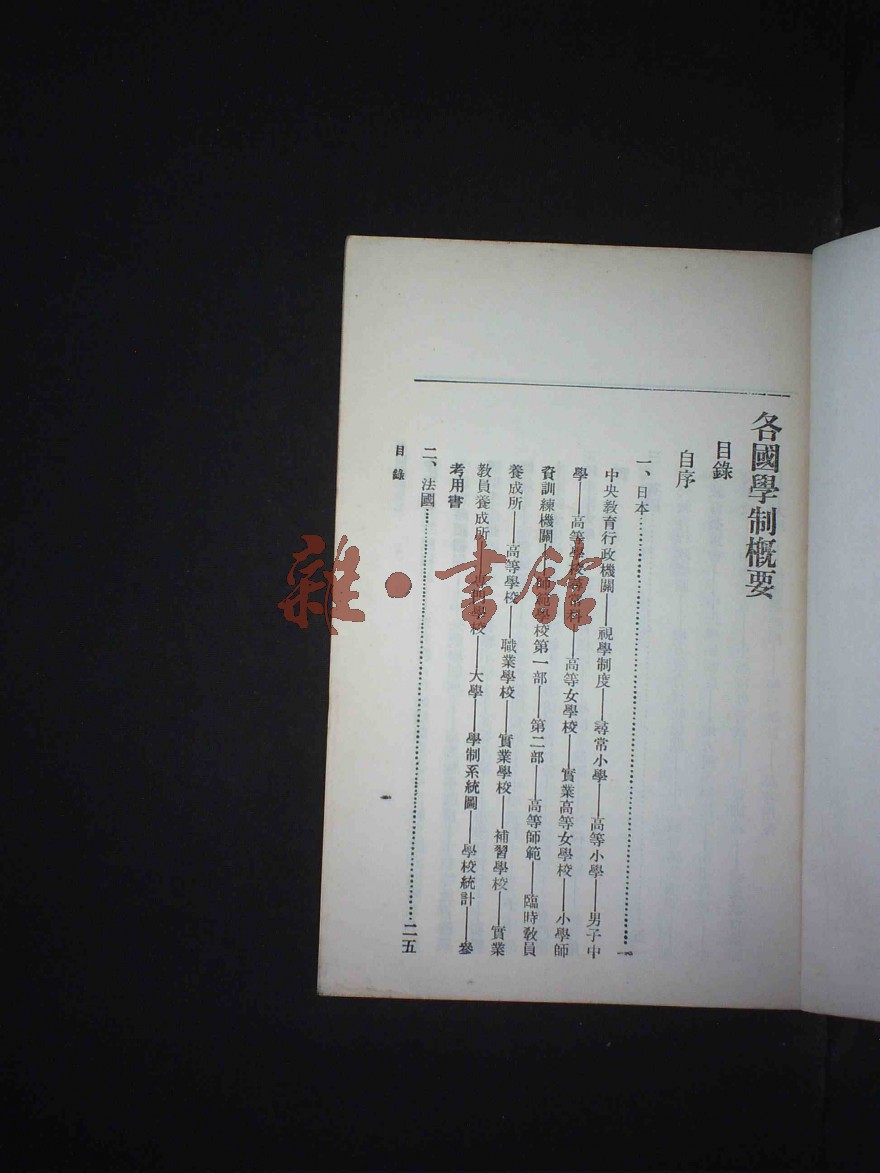 各國學制概要
目錄
自序
一、日本……………………………………一
中央教育行政機關——視學制度——尋常小學——高等小學——男子中
學——高等學校尋常科——高等女學校——實業高等女學校——小學師
資訓練機關——師範學校第一部——第二部——高等師範——臨時教員
養成所——高等學校——職業學校——實業學校——補習學校——實業
教員養成所——專門學校——大學——學制系統圖——學校統計——參
考用書
二、法國……………………………………二五
目錄
一
雜·書館